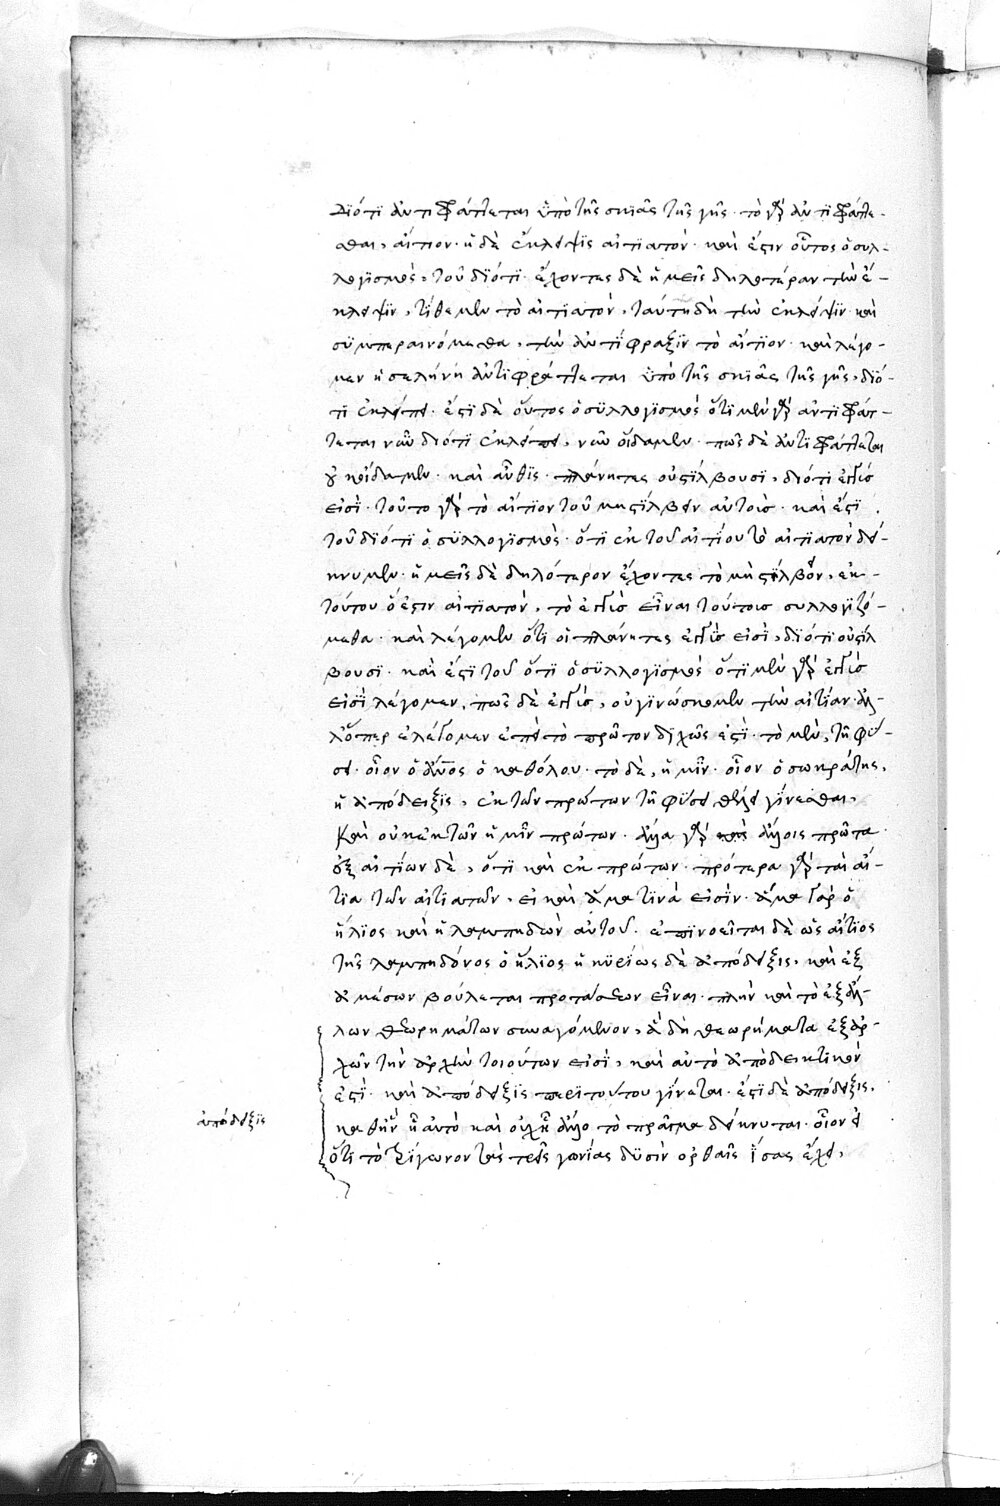 διότι ἀντιφράττεται ὑπὸ τῆς σκιᾶς τῆς γῆς· τὸ γὰρ ἀντιφράττε-
σθαι, αἴτιον· ἡ δὲ ἔκλειψις αἰτιατόν· καὶ ἔστιν οὗτος ὁ συλ-
λογισμὸς, τοῦ διότι· ἔχοντες δὲ ἡμεῖς δηλοτέραν τὴν ἔ-
κλειψιν, τίθεμεν τὸ αἰτιατόν, ταύτην δὴ τὴν ἔκλειψιν· καὶ
συμπεραινόμεθα, τὴν ἀντίφραξιν τὸ αἴτιον· καὶ λέγο-
μεν ἡ σελήνη ἀντιφράττεται ὑπὸ τῆς σκιᾶς τῆς γῆς, διό-
τι ἐκλείπει· ἔστι δὲ οὗτος ὁ συλλογισμὸς ὅτι μὲν γὰρ ἀντιφράτ-
τεται νῦν διότι ἐκλείπει, νῦν οἴδαμεν· πῶς δὲ ἀντιφράττεται
οὐκ οἴδαμεν· καὶ αὖθις· πλάνητες οὐ στίλβουσι, διότι ἐγγύς
εἰσί· τοῦτο γὰρ τὸ αἴτιον τοῦ μὴ στίλβειν αὐτοῖς· καὶ ἔστι
τοῦ διότι ὁ συλλογισμὸς· ὅτι ἐκ τοῦ αἰτίου τὸ αἰτιατὸν δεί-
κνυμεν· ἡμεῖς δὲ δηλότερον ἔχοντες τὸ μὴ στίλβειν, ἐκ-
τούτου ὅ ἐστιν αἰτιατόν, τὸ ἐγγὺς εἶναι τούτοις συλλογιζό-
μεθα· καὶ λέγομεν ὅτι οἱ πλάνητες ἐγγύς εἰσὶ, διότι οὐ στίλ
βουσι· καὶ ἔστι τοῦ ὅτι ὁ συλλογισμὸς ὅτι μὲν γὰρ ἐγγύς
εἰσὶ λέγομεν, πῶς δὲ ἐγγύς, οὐ γινώσκομεν τὴν αἰτίαν· ἀλ-
λ' ὅπερ ἐλέγομεν ἐπεὶ τὸ πρῶτον διχῶς ἐστὶ· τὸ μὲν, τῇ φύ-
σει· οἷον ὁ ἄνος ὁ καθόλου· τὸ δὲ, ἡμῖν· οἷον ὁ σωκράτης,
ἡ ἀπόδειξις, ἐκ τῶν πρώτων τῇ φύσει θέλει γίνεσθαι,
καὶ οὐκ ἐκ τῶν ἡμῖν πρώτων· ἄλλα γὰρ ἄλλοις πρῶτα·
ἐξ αἰτίων δὲ, ὅτι καὶ ἐκ πρώτων· πρότερα γὰρ τὰ αἴ-
τια τῶν αἰτιατῶν· εἰ καὶ ἅμα τινά εἰσιν· ἅμα γὰρ ὁ
ἥλιος καὶ ἡ λαμπηδὼν αὐτοῦ· ἐπινοεῖται δὲ ὡς αἴτιος
τῆς λαμπηδόνος ὁ ἥλιος ἡ κυρίως δὲ ἀπόδειξις, καὶ ἐξ
ἀμέσων βούλεται προτάσεων εἶναι· πλὴν καὶ τὸ ἐξ ἄλ-
λων θεωρημάτων συναγόμενον, ἃ δὴ θεωρήματα ἐξ ἀρ-
χῶν τὴν ἀρχὴν τοιούτων εἰσὶ, καὶ αὐτὸ ἀποδεικτικόν
ἐστὶ· καὶ ἀπόδειξις περὶ τούτου γίνεται· ἔστι δὲ ἀπόδειξις,
καθ' ἣν ᾗ αὐτὸ καὶ οὐχ ᾗ ἄλλο τὸ πρᾶγμα δείκνυται· οἷον εἰ
ὅτι τὸ τρίγωνον τὰς τρεῖς γωνίας δυσὶν ὀρθαῖς ἴσας ἔχει,
ἀπόδειξις